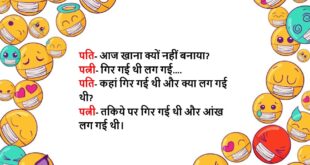 पति- आज खाना क्यों नहीं बनाया?
पत्नी- गिर गई थी लग गई....
पति- कहां गिर गई थी और क्या लग गई
थी?
पत्नी- तकिये पर गिर गई थी और आंख
लग गई थी।